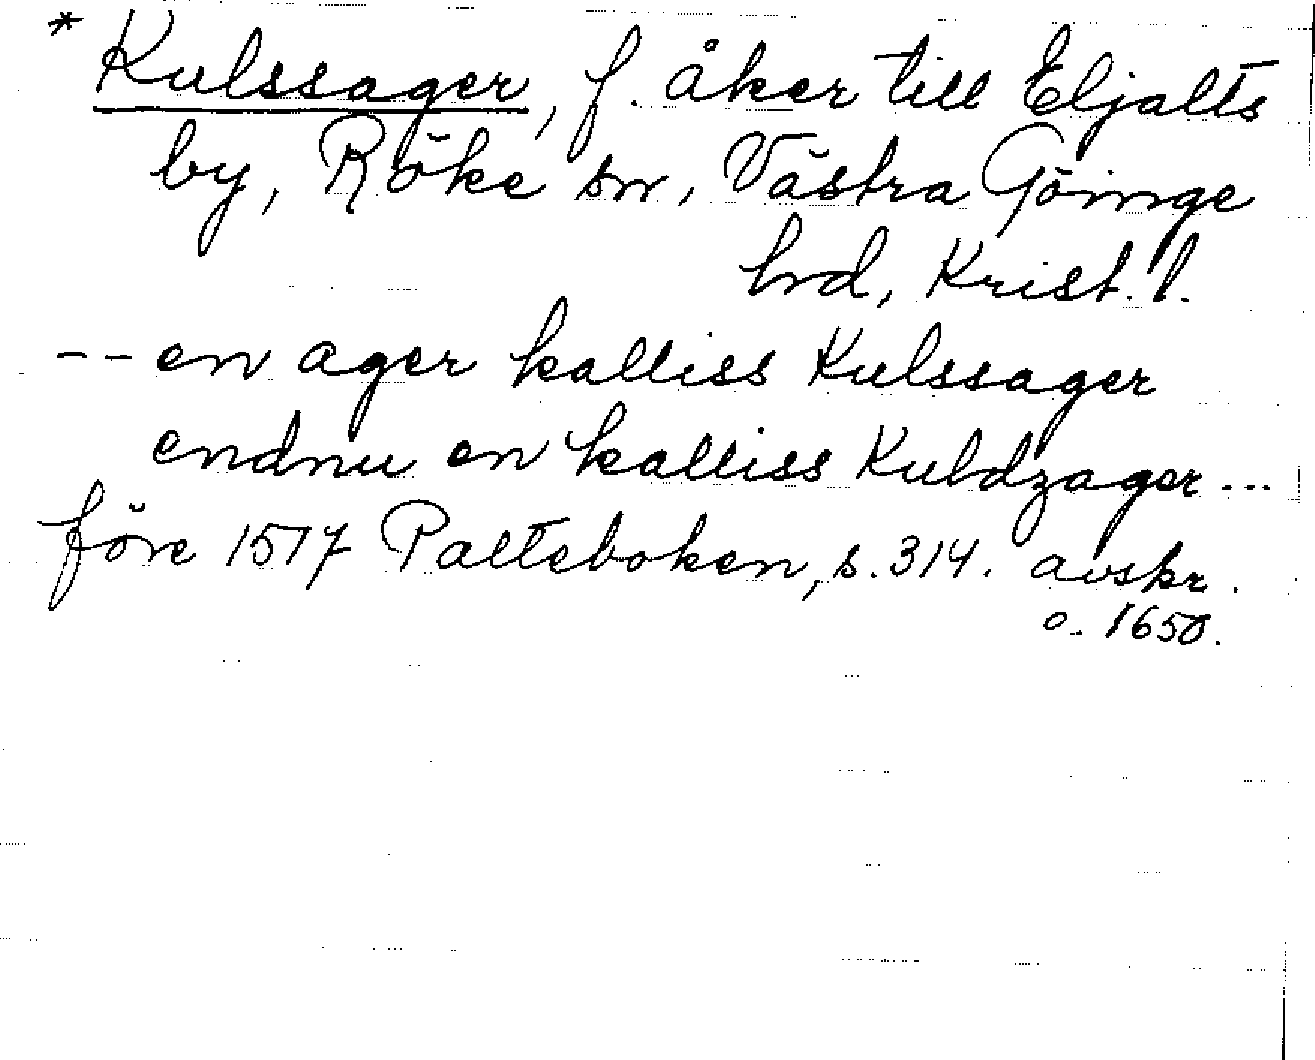 * Kulssager, f. åker till Eljalts
by, Röke sn, Västra Göinge
hrd, Krist. l.
-- en ager kalliss Kulssager
endnu en kalliss Kuldzager ...
före 1517 Palteboken, s. 314. avskr.
o. 1650.